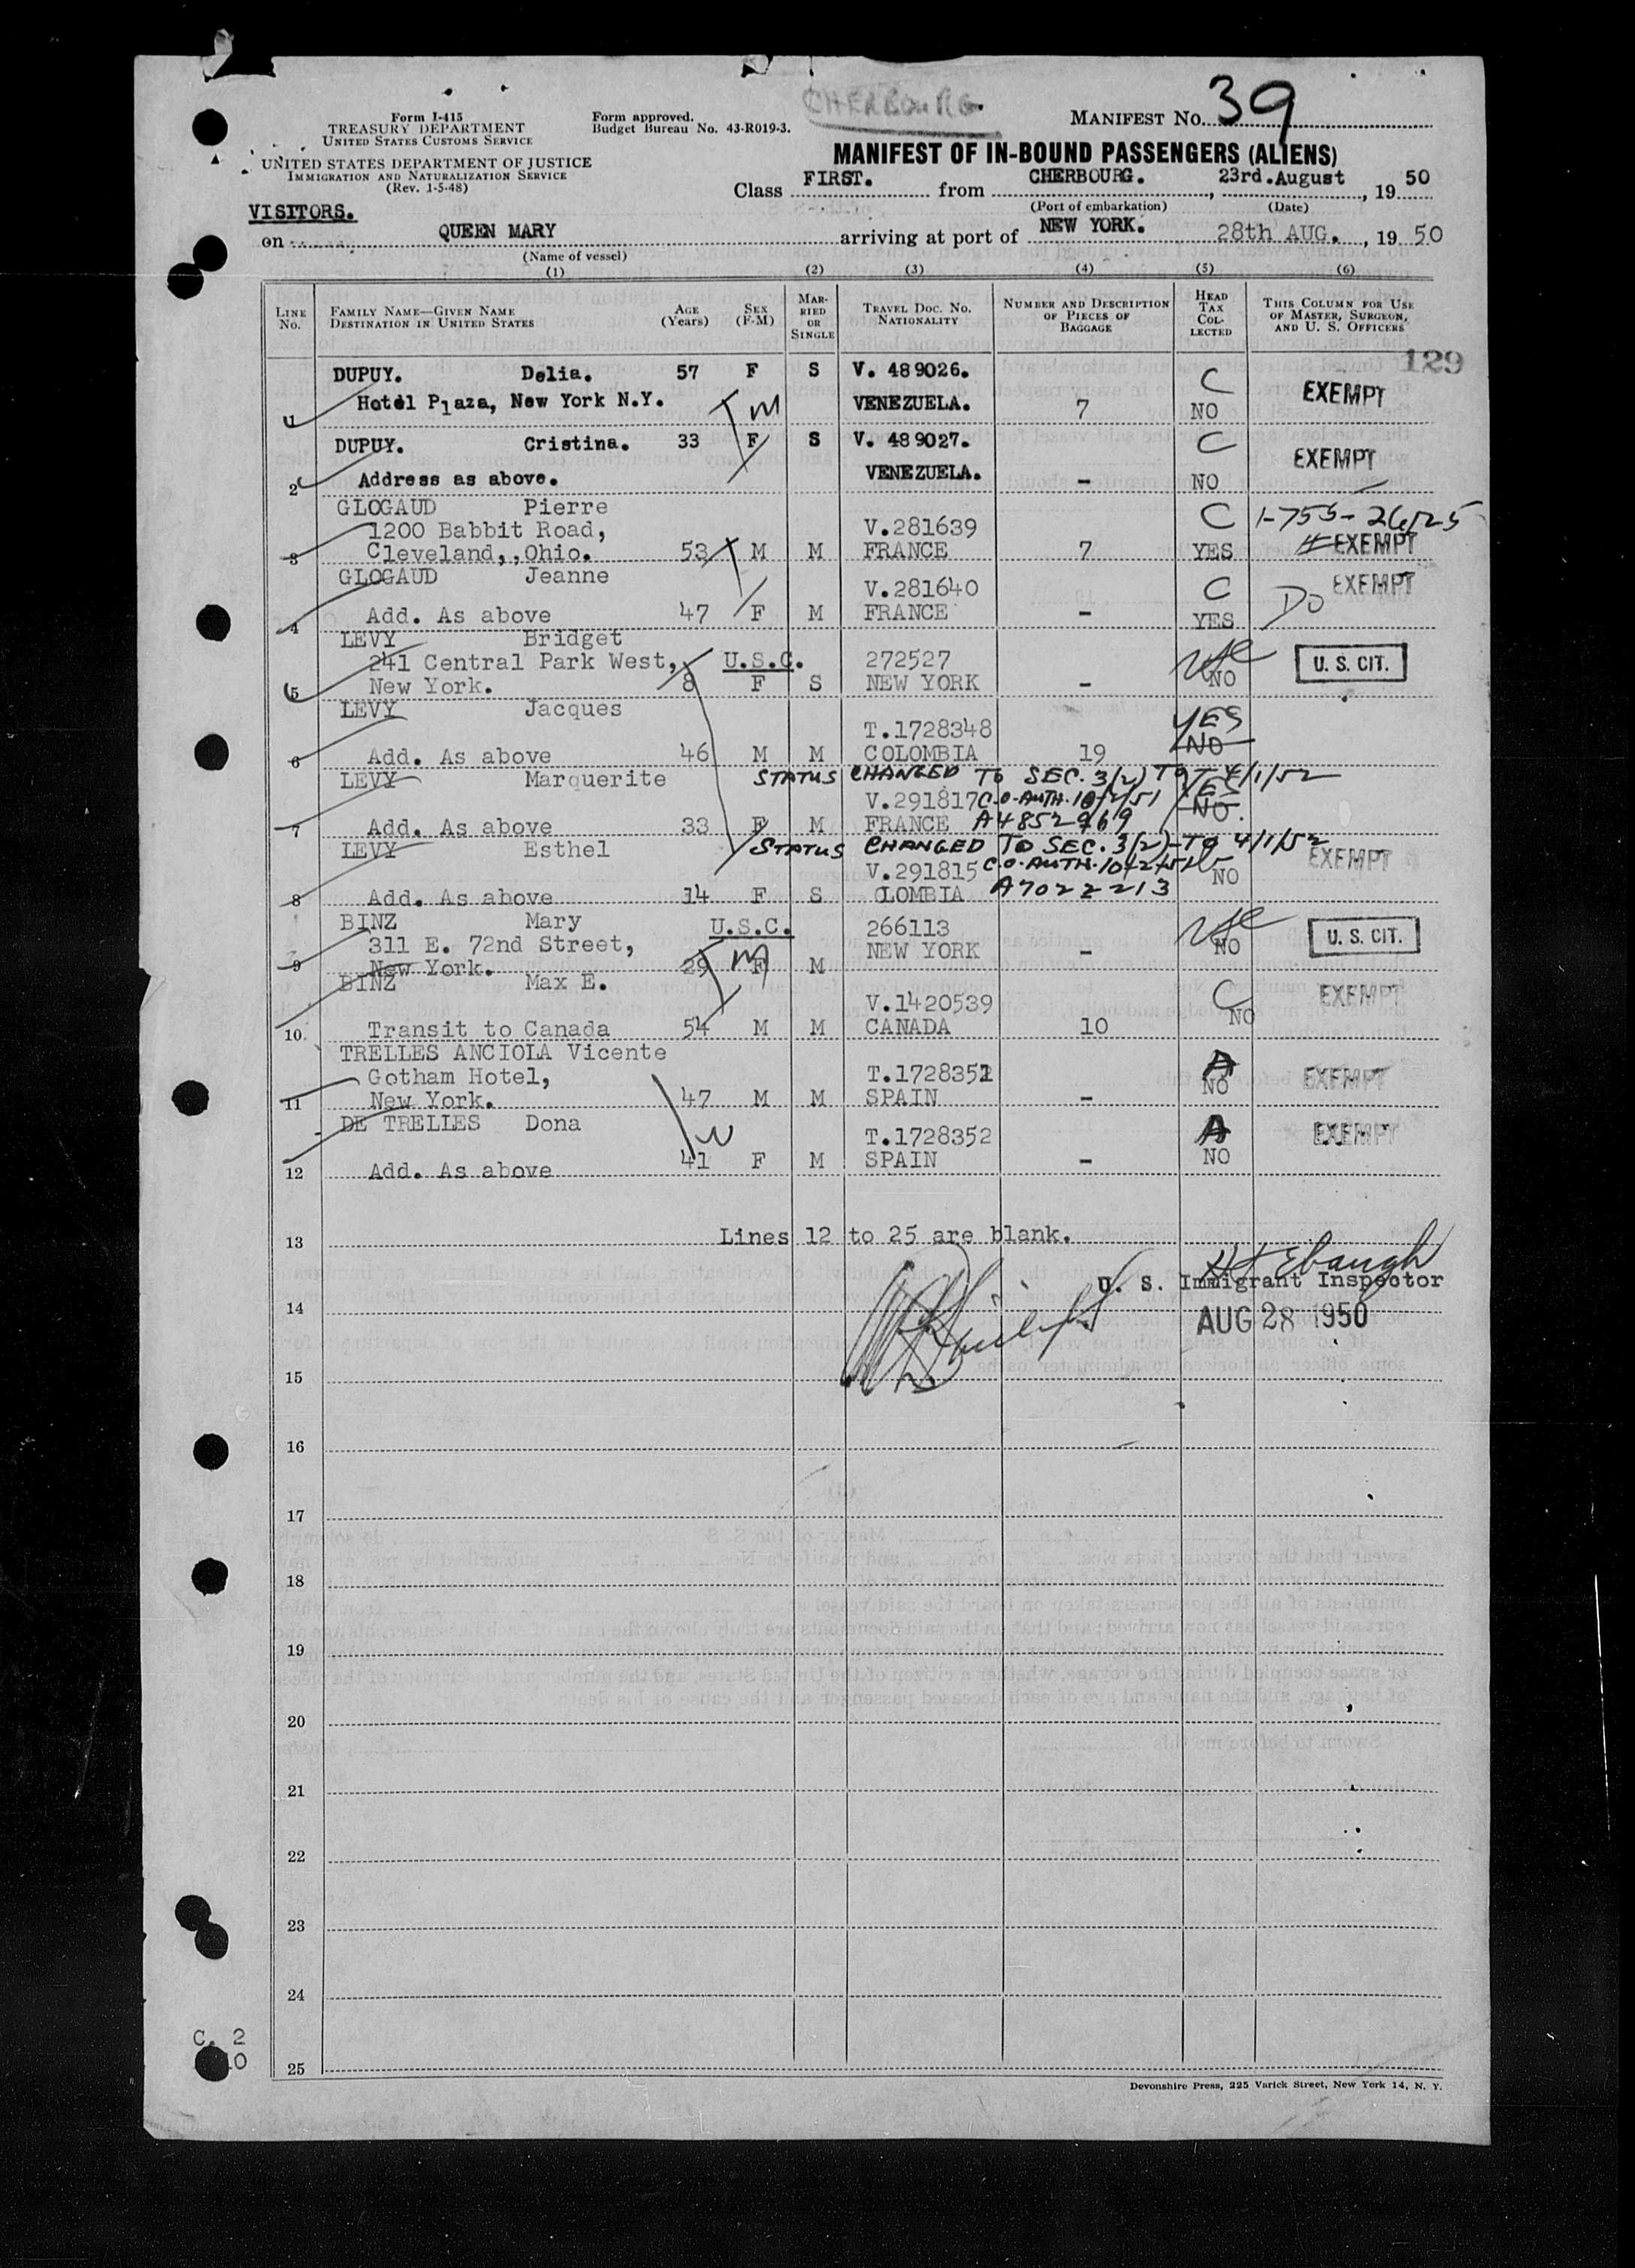 CHERBOURG
Form I-415
TREASURY DEPARTMENT
UNITED STATES CUSTOMS SERVICE
Form approved.
Budget Bureau No. 43-R019-3.
MANIFEST NO. 39
UNITED STATES DEPARTMENT OF JUSTICE
IMMIGRATION AND NATURALIZATION SERVICE
(Rev. 1-5-48)
MANIFEST OF IN-BOUND PASSENGERS (ALIENS)
Class FIRST. from CHERBOURG. , 23rd.August , 19 50
(Port of embarkation) (Date)
VISITORS.
on QUEEN MARY arriving at port of NEW YORK. 28th AUG. , 19 50
(Name of vessel)
(1) (2) (3) (4) (5) (6)
LINE No.
FAMILY NAME—GIVEN NAME
DESTINATION IN UNITED STATES
AGE (Years)
SEX (F-M)
MARRIED OR SINGLE
TRAVEL DOC. NO.
NATIONALITY
NUMBER AND DESCRIPTION OF PIECES OF BAGGAGE
HEAD TAX COLLECTED
THIS COLUMN FOR USE OF MASTER, SURGEON, AND U. S. OFFICERS
129
DUPUY. Delia. 57 F S V. 489026. C EXEMPT
1 Hotel Plaza, New York N.Y. M VENEZUELA. 7 NO
DUPUY. Cristina. 33 F S V. 489027. C EXEMPT
2 Address as above. VENEZUELA. - NO
GLOGAUD Pierre C 1-755-26525
1200 Babbit Road, V.281639
3 Cleveland,,Ohio. 53 M M FRANCE 7 YES EXEMPT
GLOGAUD Jeanne V.281640 C EXEMPT
4 Add. As above 47 F M FRANCE - YES Do
LEVY Bridget
241 Central Park West, U.S.C. 272527 U. S. CIT.
5 New York. 8 F S NEW YORK - NO
LEVY Jacques T.1728348 YES
6 Add. As above 46 M M COLOMBIA 19 NO
LEVY Marguerite STATUS CHANGED TO SEC. 3(2) TO 4/1/52
V.291817 C.O. AUTH. 10/2/51 YES
7 Add. As above 33 F M FRANCE A4852969 NO
LEVY Esthel STATUS CHANGED TO SEC. 3(2) TO 4/1/52
V.291815 C.O. AUTH. 10/2/51 NO EXEMPT
8 Add. As above 14 F S LOMBIA A7022213
BINZ Mary U.S.C. 266113
311 E. 72nd Street, NEW YORK NO U. S. CIT.
9 New York. 29 F M -
BINZ Max E. V.1420539 C EXEMPT
10 Transit to Canada 54 M M CANADA 10 NO
TRELLES ANCIOLA Vicente A
Gotham Hotel, T.1728351 NO EXEMPT
11 New York. 47 M M SPAIN -
DE TRELLES Dona T.1728352 A EXEMPT
12 Add. As above 41 F M SPAIN - NO
13 Lines 12 to 25 are blank.
U. S. Immigrant Inspector
14 AUG 28 1950
15
16
17
18
19
20
21
22
23
24
C. 2
25
Devonshire Press, 225 Varick Street, New York 14, N. Y.